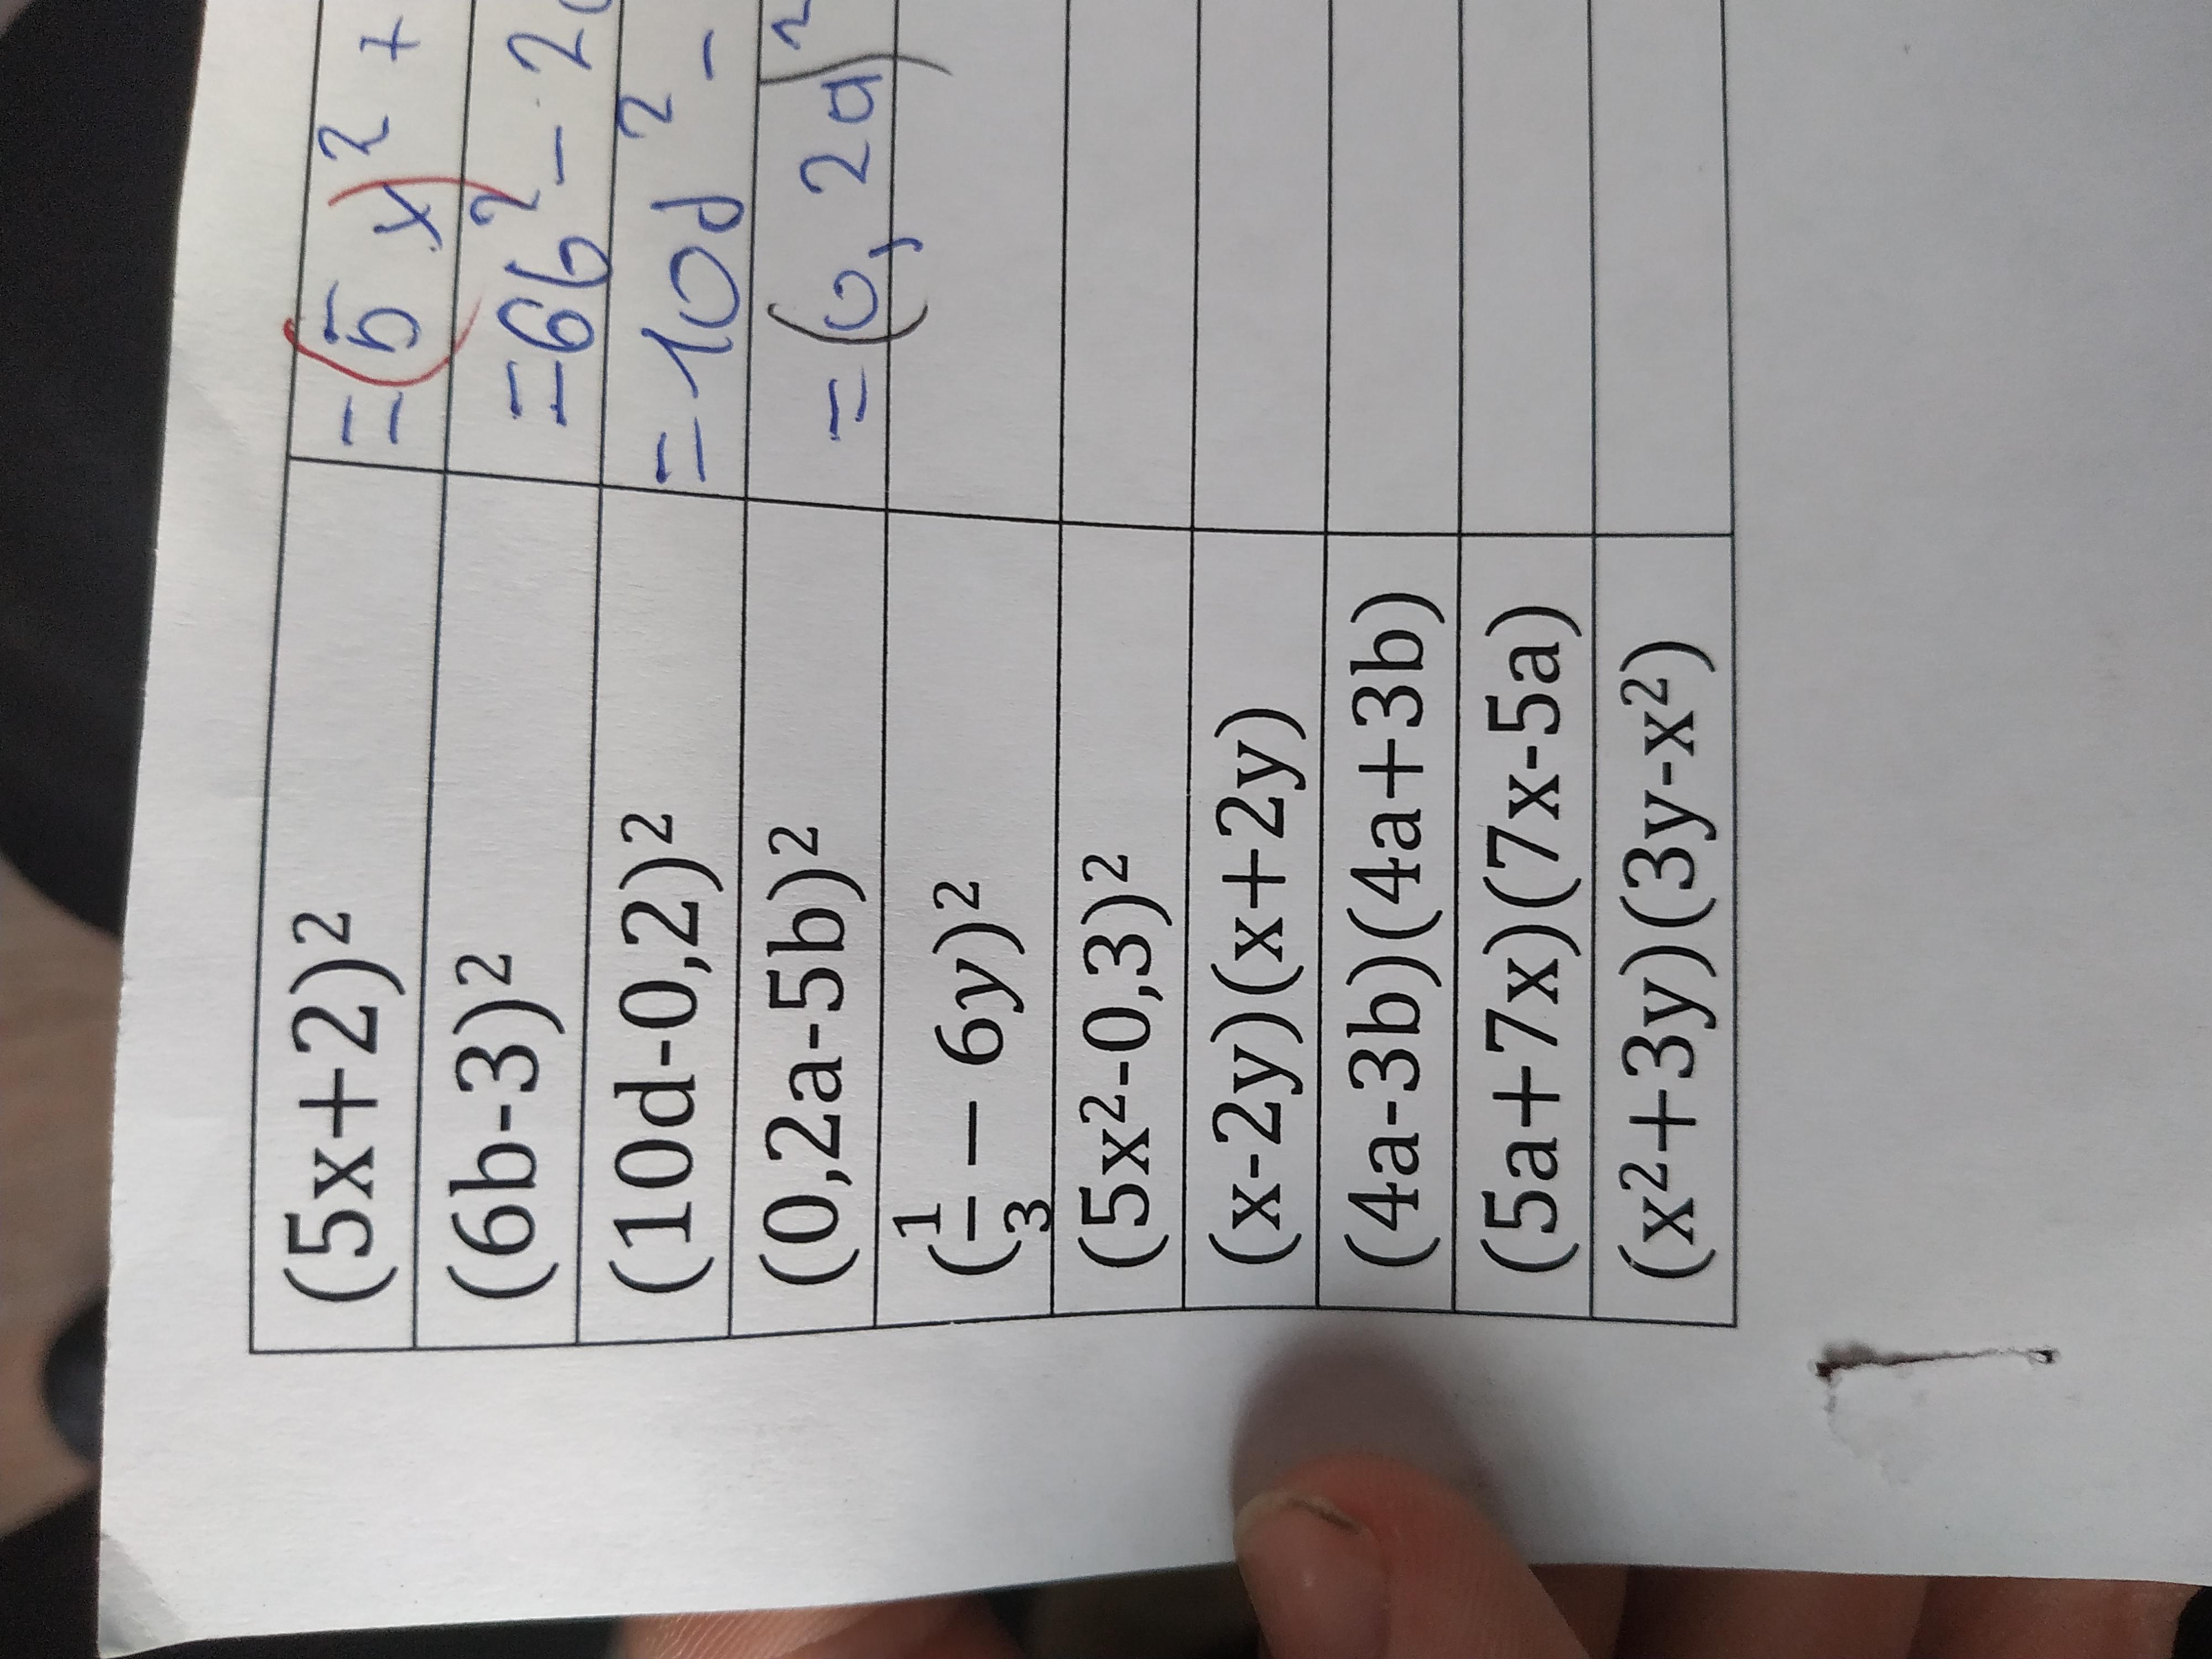 (5x+2)² =(5x)² +
(6b-3)² =6b² - 2
(10d-0,2)² =10d² -
(0,2a-5b)² =(0,2a)²
(1/3 − 6y)²
(5x²-0,3)²
(x-2y)(x+2y)
(4a-3b)(4a+3b)
(5a+7x)(7x-5a)
(x²+3y)(3y-x²)